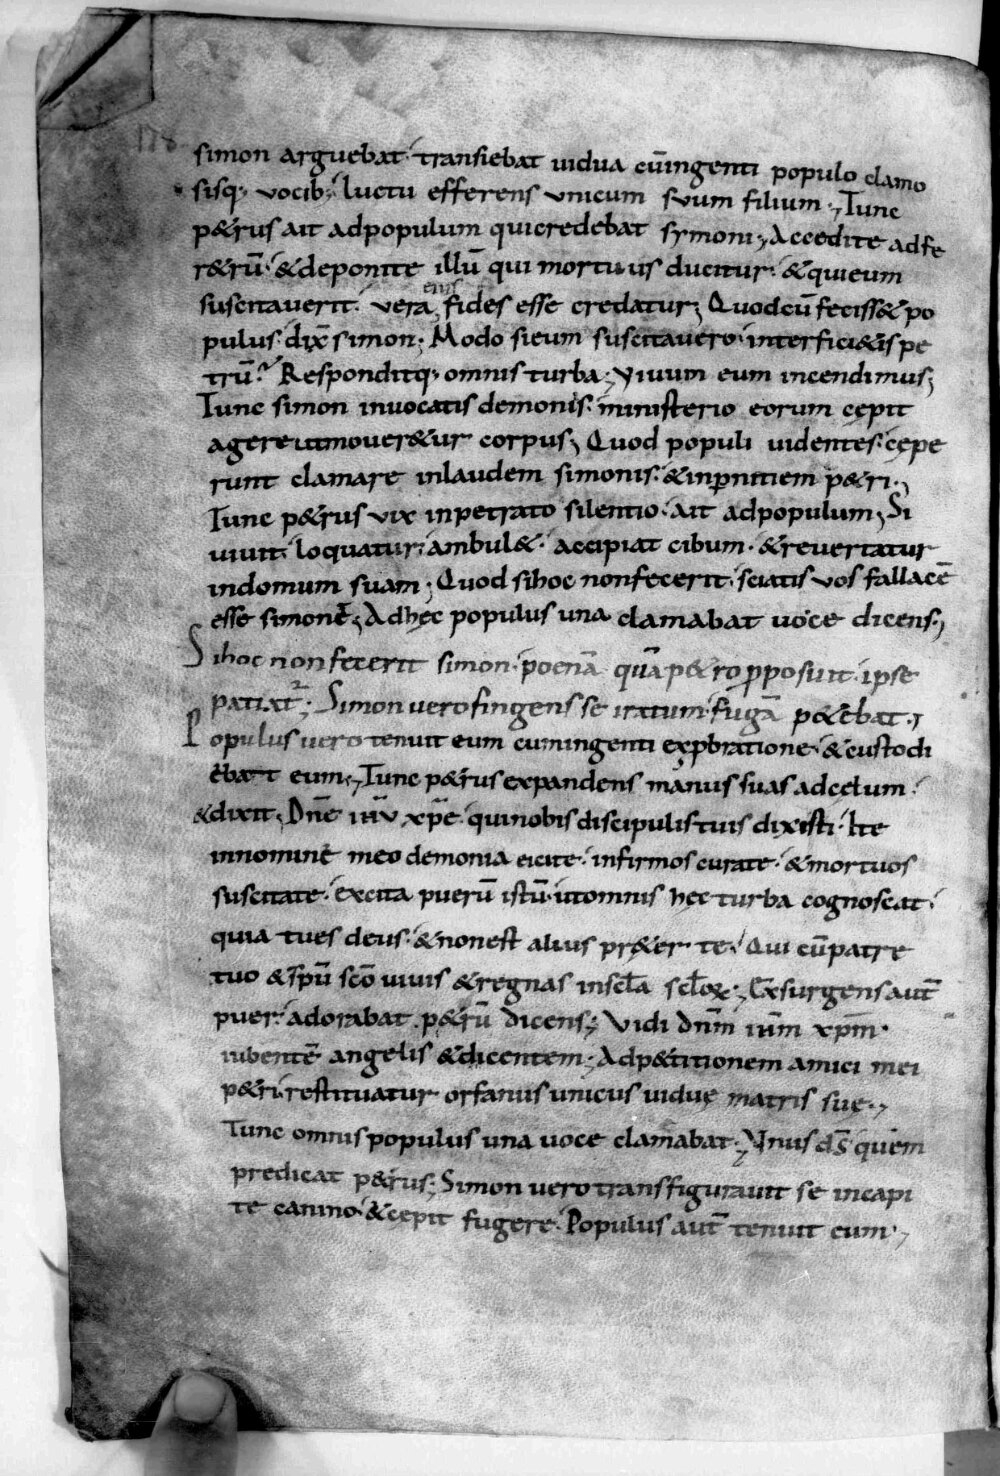 simon arguebat· transiebat uidua cūingenti populo clamo
sisq; vocib; luctu efferens vnicum suum filium·; Tunc
p&rus ait adpopulum quicredebat symoni; Accedite adfe
r&rū· &deponite illū qui mortuus ducitur· &quieum
suscitauerit· vera eius fides esse credatur; Quodcū feciss& po
pulus· dix̄ simon; Modo sieum suscitauero· interfici&is pe
trū? Responditq; omnis turba; Viuum eum incendimus;
Tunc simon inuocatis demonis· ministerio eorum cępit
agere utmouer&ur corpus; Quod populi uidentes· cępe
runt clamare inlaudem simonis· &inꝑnitiem p&ri·;
Tunc p&rus vix inpetrato silentio· ait adpopulum; Si
uiuit· loquatur· ambul&· accipiat cibum· &reuertatur
indomum suam; Quod sihoc nonfecerit· sciatis vos fallacē
esse simonē; Adhęc populus una clamabat uoce dicens·;
Sihoc non fecerit simon· poenā quā p&ro ꝓposuit· ipse
patiat᷑; Simon uero fingens se iratum· fugā p&ebat·;
Populus uero tenuit eum cumingenti exꝓbratione· &custodi
ebant eum·; Tunc p&rus expandens manus suas adcelum·
&dixit; Dn̄e ih̄u xp̄e· quinobis discipulis tuis dixisti· Ite
innomine meo demonia eicite· infirmos curate· &mortuos
suscitate· excita puerū istū· utomnis hęc turba cognoscat·
quia tues deus· &nonest alius pr&er te· Qui cūpatre
tuo &sp̄u scō uiuis &regnas inscła scłoꝝ·; Exsurgens aut̄
puer· adorabat p&rū dicens; Vidi dn̄m ih̄m xp̄m·
iubentē angelis &dicentem; Adp&itionem amici mei
p&ri· restituatur orfanus unicus uiduę matris suę·;
Tunc omnis populus una uoce clamabat·; Vnus d̄s quem
predicat p&rus; Simon uero transfigurauit se incapi
te canino· &cępit fugere· Populus aut̄ tenuit eum·;